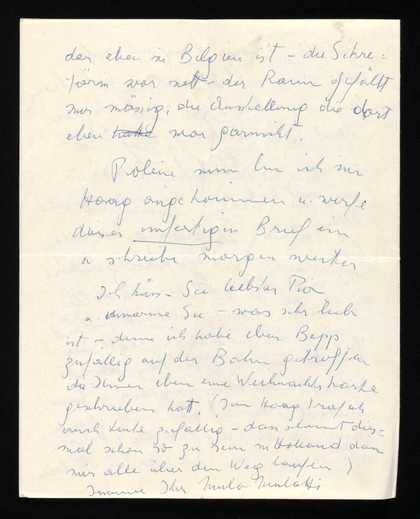 der eben in Belgien ist – die Sekre-
tärin war nett – der Raum gefällt
mir mässig, die Ausstellung die dort
eben hatte war garnicht.
nun bin ich im
Haag angekommen u. werfe
diesen unfertigen Brief ein
u schreibe morgen weiter
Ich küsse Sie liebster
u. umarme Sie – was sehr lieb
ist – denn ich habe eben Bepp
zufällig auf der Bahn getroffen
die Ihnen eben eine Weihnachtskarte
geschrieben hat. (Im Haag traf ich
auch Leute zufällig – das scheint dies-
mal schon so zu sein in Holland dass
mir alle über den Weg laufen)
Immer Ihr